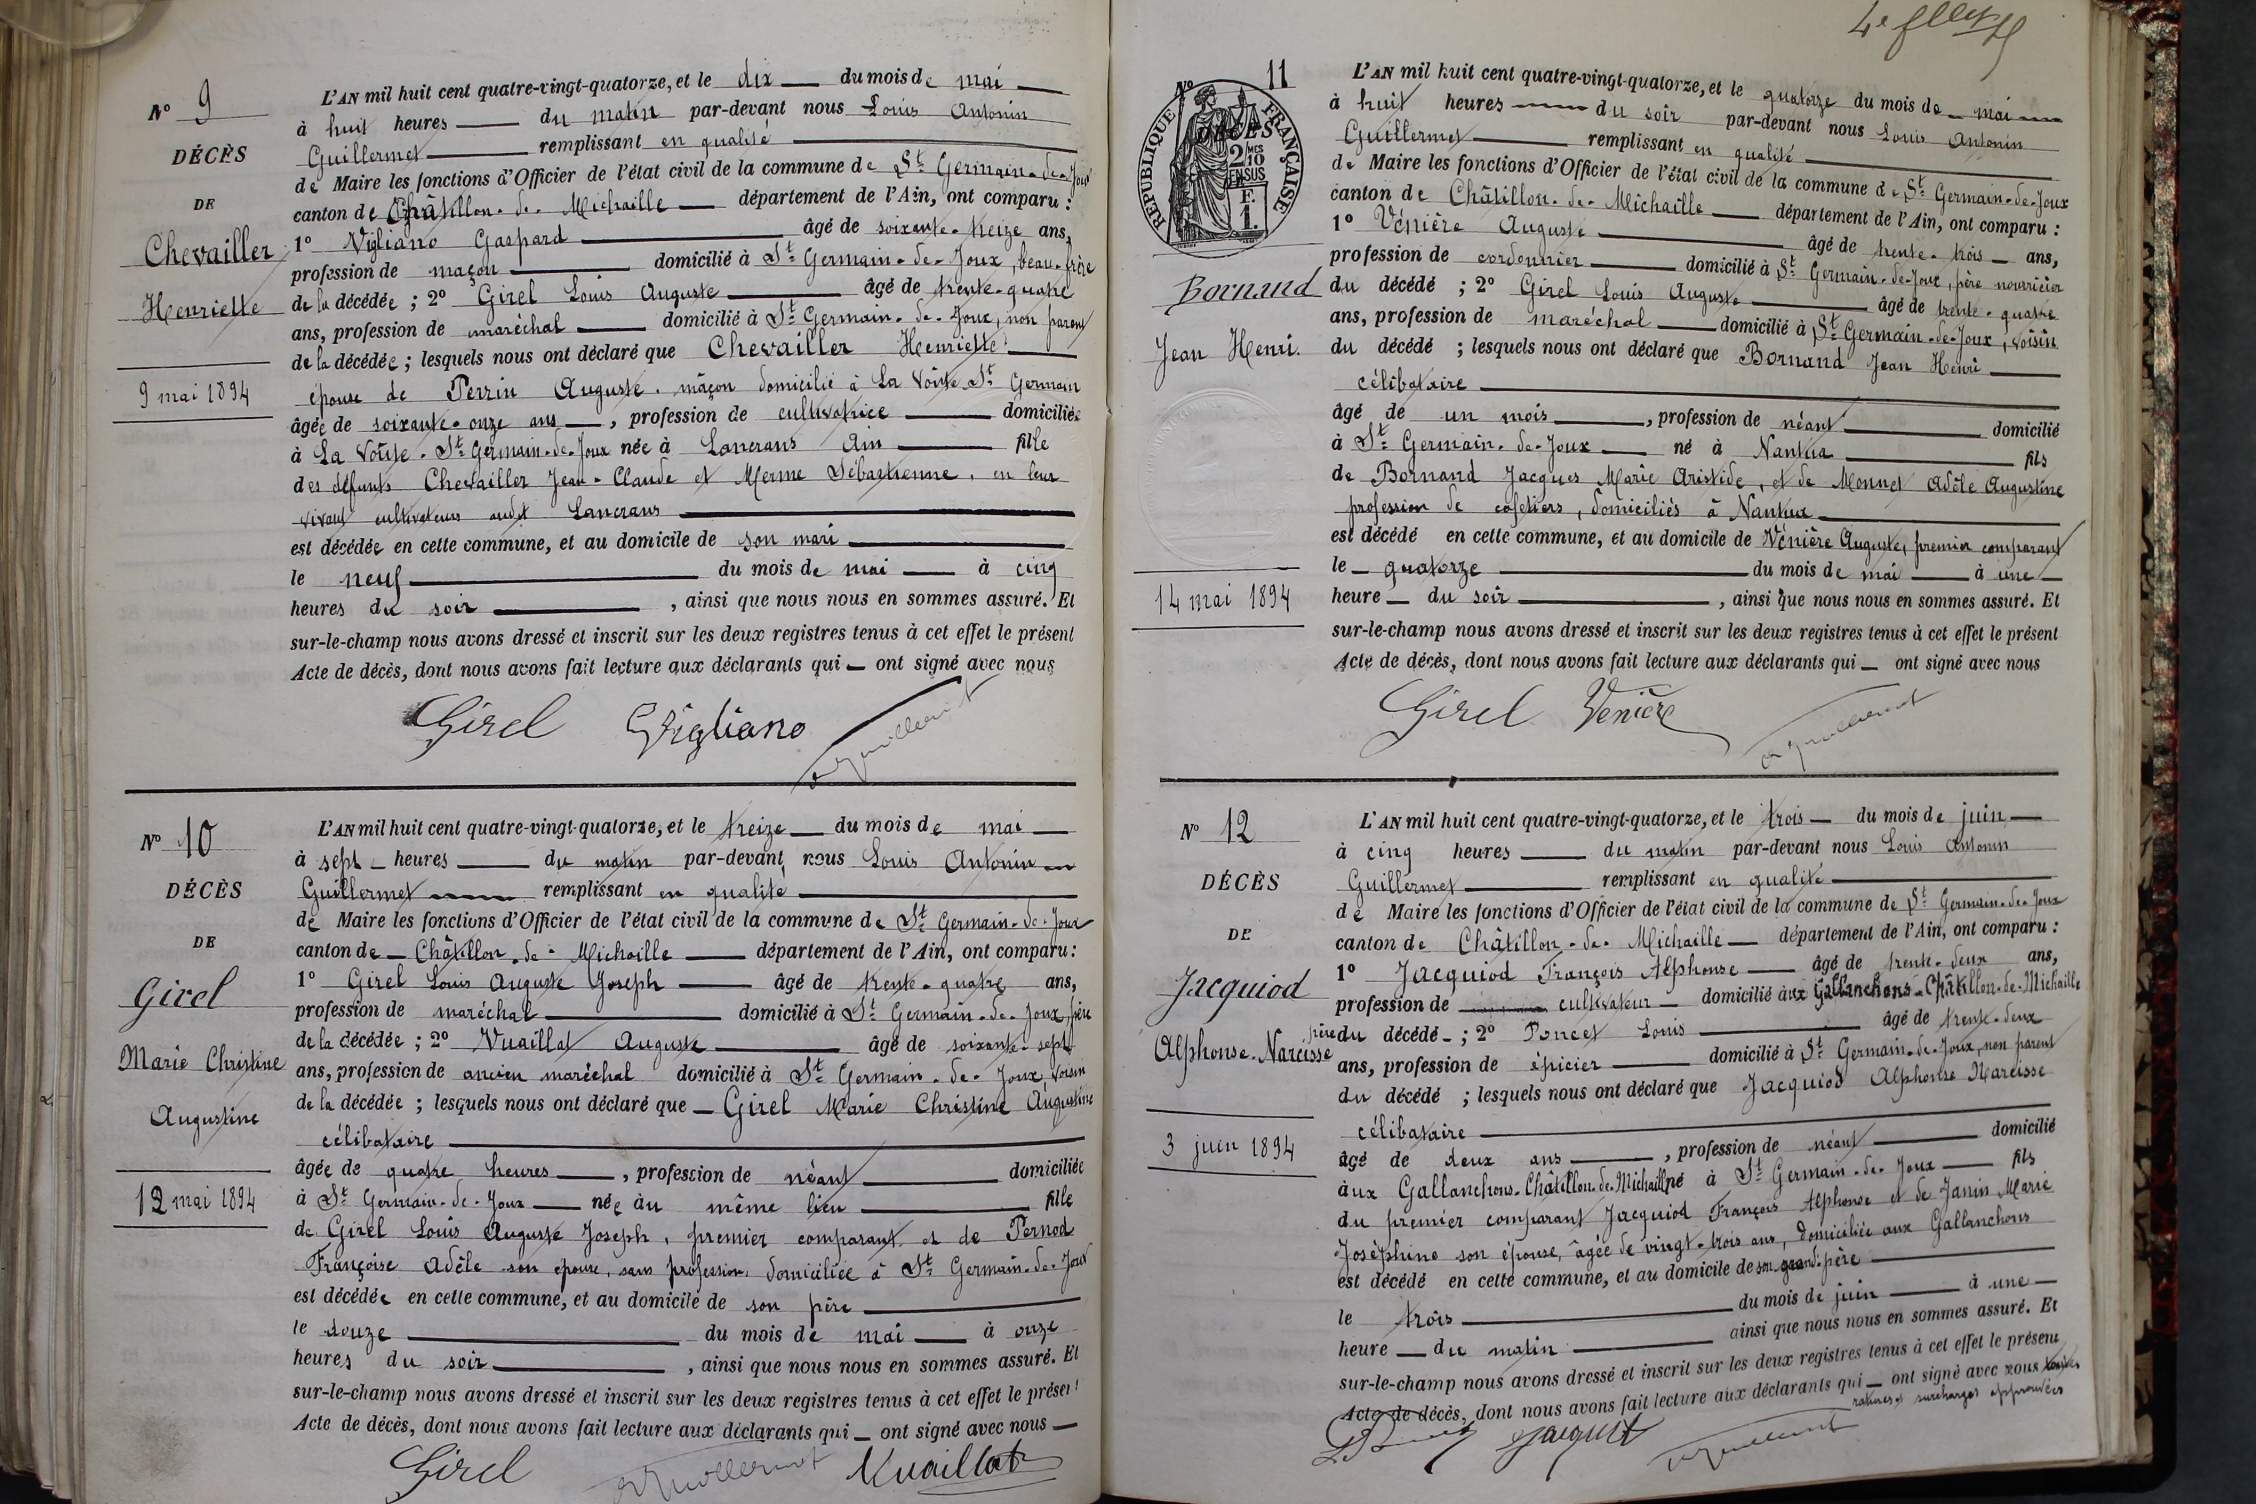 N° 9
DÉCÈS
DE
Chevailler
Henriette
9 mai 1894
L'AN mil huit cent quatre-vingt-quatorze, et le dix du mois de mai
à huit heures du matin par-devant nous Louis Antonin
Guillermet remplissant en qualité
de Maire les fonctions d'Officier de l'état civil de la commune de St Germain-de-Joux
canton de Châtillon-de-Michaille département de l'Ain, ont comparu :
1° Vigliano Gaspard âgé de soixante-treize ans,
profession de maçon domicilié à St Germain-de-Joux, beau-frère
de la décédée ; 2° Girel Louis Auguste âgé de trente-quatre
ans, profession de maréchal domicilié à St Germain-de-Joux, non parent
de la décédée ; lesquels nous ont déclaré que Chevailler Henriette
épouse de Perrin Auguste, maçon domicilié à La Voûte St Germain
âgée de soixante-onze ans, profession de cultivatrice domiciliée
à La Voûte-St Germain-de-Joux née à Lancrans Ain fille
des défunts Chevailler Jean-Claude et Merme Sébastienne, en leur
vivant cultivateurs audit Lancrans
est décédée en cette commune, et au domicile de son mari
le neuf du mois de mai à cinq
heures du soir, ainsi que nous nous en sommes assuré. Et
sur-le-champ nous avons dressé et inscrit sur les deux registres tenus à cet effet le présent
Acte de décès, dont nous avons fait lecture aux déclarants qui ont signé avec nous
Girel Vigliano Guillermet
N° 10
DÉCÈS
DE
Girel
Marie Christine
Augustine
12 mai 1894
L'AN mil huit cent quatre-vingt-quatorze, et le treize du mois de mai
à sept heures du matin par-devant nous Louis Antonin
Guillermet remplissant en qualité
de Maire les fonctions d'Officier de l'état civil de la commune de St Germain-de-Joux
canton de Châtillon-de-Michaille département de l'Ain, ont comparu :
1° Girel Louis Auguste Joseph âgé de trente-quatre ans,
profession de maréchal domicilié à St Germain-de-Joux, père
de la décédée ; 2° Vuaillat Auguste âgé de soixante-sept
ans, profession de ancien maréchal domicilié à St Germain-de-Joux, voisin
de la décédée ; lesquels nous ont déclaré que Girel Marie Christine Augustine
célibataire
âgée de quatre heures, profession de néant domiciliée
à St Germain-de-Joux née au même lieu fille
de Girel Louis Auguste Joseph, premier comparant et de Pernod
Françoise Adèle son épouse, sans profession, domiciliée à St Germain-de-Joux
est décédée en cette commune, et au domicile de son père
le douze du mois de mai à onze
heures du soir, ainsi que nous nous en sommes assuré. Et
sur-le-champ nous avons dressé et inscrit sur les deux registres tenus à cet effet le présent
Acte de décès, dont nous avons fait lecture aux déclarants qui ont signé avec nous
Girel Guillermet Vuaillat
N° 11
DÉCÈS
RÉPUBLIQUE FRANÇAISE
2/10 EN SUS
1 F.
Bornand
Jean Henri.
14 mai 1894
L'AN mil huit cent quatre-vingt-quatorze, et le quatorze du mois de mai
à huit heures du soir par-devant nous Louis Antonin
Guillermet remplissant en qualité
de Maire les fonctions d'Officier de l'état civil de la commune de St Germain-de-Joux
canton de Châtillon-de-Michaille département de l'Ain, ont comparu :
1° Vénière Auguste âgé de trente-trois ans,
profession de cordonnier domicilié à St Germain-de-Joux, père nourricier
du décédé ; 2° Girel Louis Auguste âgé de trente-quatre
ans, profession de maréchal domicilié à St Germain-de-Joux, voisin
du décédé ; lesquels nous ont déclaré que Bornand Jean Henri
célibataire
âgé de un mois, profession de néant domicilié
à St Germain-de-Joux né à Nantua fils
de Bornand Jacques Marie Aristide, et de Monnet Adèle Augustine
profession de cafetiers, domiciliés à Nantua
est décédé en cette commune, et au domicile de Vénière Auguste, premier comparant
le quatorze du mois de mai à une
heure du soir, ainsi que nous nous en sommes assuré. Et
sur-le-champ nous avons dressé et inscrit sur les deux registres tenus à cet effet le présent
Acte de décès, dont nous avons fait lecture aux déclarants qui ont signé avec nous
Girel Vénière Guillermet
N° 12
DÉCÈS
DE
Jacquiod
Alphonse-Narcisse
3 juin 1894
L'AN mil huit cent quatre-vingt-quatorze, et le trois du mois de juin
à cinq heures du matin par-devant nous Louis Antonin
Guillermet remplissant en qualité
de Maire les fonctions d'Officier de l'état civil de la commune de St Germain-de-Joux
canton de Châtillon-de-Michaille département de l'Ain, ont comparu :
1° Jacquiod François Alphonse âgé de trente-deux ans,
profession de cultivateur domicilié aux Gallanchons-Châtillon-de-Michaille
père du décédé ; 2° Poncet Louis âgé de trente-deux
ans, profession de épicier domicilié à St Germain-de-Joux, non parent
du décédé ; lesquels nous ont déclaré que Jacquiod Alphonse Narcisse
célibataire
âgé de deux ans, profession de néant domicilié
aux Gallanchons-Châtillon-de-Michaille né à St Germain-de-Joux fils
du premier comparant Jacquiod François Alphonse et de Janin Marie
Joséphine son épouse, âgée de vingt-trois ans, domiciliée aux Gallanchons
est décédé en cette commune, et au domicile de son grand-père
le trois du mois de juin à une
heure du matin ainsi que nous nous en sommes assuré. Et
sur-le-champ nous avons dressé et inscrit sur les deux registres tenus à cet effet le présent
Acte de décès, dont nous avons fait lecture aux déclarants qui ont signé avec nous
ratures et surcharges approuvées
Guillermet